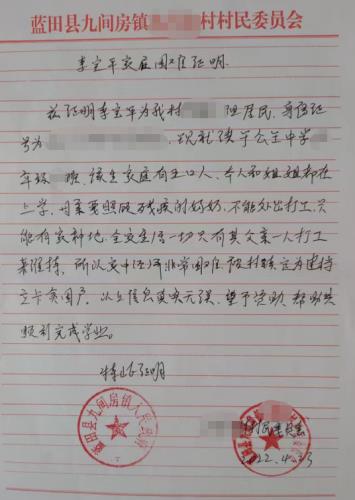 蓝田县九间房镇 村村民委员会
李宝平家庭困难证明
兹证明李宝平为我村 组居民,身份证
号为 ,现就读于公王中学
年级 班,该生家庭有五口人,本人和姐姐都在
上学,母亲要照顾残疾的奶奶,不能外出打工,只
能在家种地,全家生活一切只有其父亲一人打工
来维持,所以家中经济非常困难,被村镇定为建档
立卡贫困户。以上信息真实无误,望予资助,帮助其
顺利完成学业。
特此证明
蓝田县九间房镇人民政府
村民委员会
2022.4.23